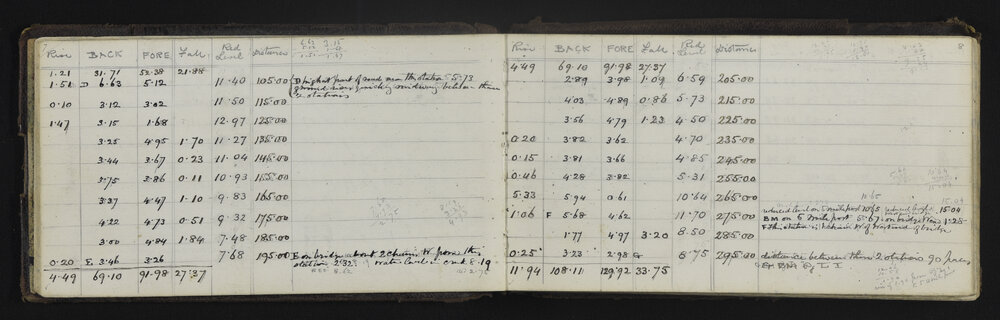 7
Rise BACK FORE Fall Red Level Distance
1.21 31.71 52.38 21.88
1.51 D 6.63 5.12 11.40 105.00 D highest point of road near this station 5.73
ground rises quickly midway between these
2 stations
0.10 3.12 3.02 11.50 115.00
1.47 3.15 1.68 12.97 125.00
3.25 4.95 1.70 11.27 135.00
3.44 3.67 0.23 11.04 145.00
3.75 3.86 0.11 10.93 155.00
3.37 4.47 1.10 9.83 165.00
4.22 4.73 0.51 9.32 175.00
3.00 4.84 1.84 7.48 185.00
0.20 E 3.46 3.26 7.68 195.00 E on bridge about 2 chains W from this
station 2.32 water level in creek 8.19
4.49 69.10 91.98 27.37
8
Rise BACK FORE Fall Red Level Distance
4.49 69.10 91.98 27.37
2.89 3.98 1.09 6.59 205.00
4.03 4.89 0.86 5.73 215.00
3.56 4.79 1.23 4.50 225.00
0.20 3.82 3.62 4.70 235.00
0.15 3.81 3.66 4.85 245.00
0.46 4.28 3.82 5.31 255.00
5.33 5.94 0.61 10.64 265.00
1.06 F 5.68 4.62 11.70 275.00 reduced level on 5 mile post 10.65 reduced level 15.04
BM on 5 mile post 5.67 on bridge 1.28
F this station is W of bridge
1.77 4.97 3.20 8.50 285.00
0.25 3.23 2.98 G 8.75 295.00 distance between these 2 stations 90 paces
G BM
11.94 108.11 129.92 33.75